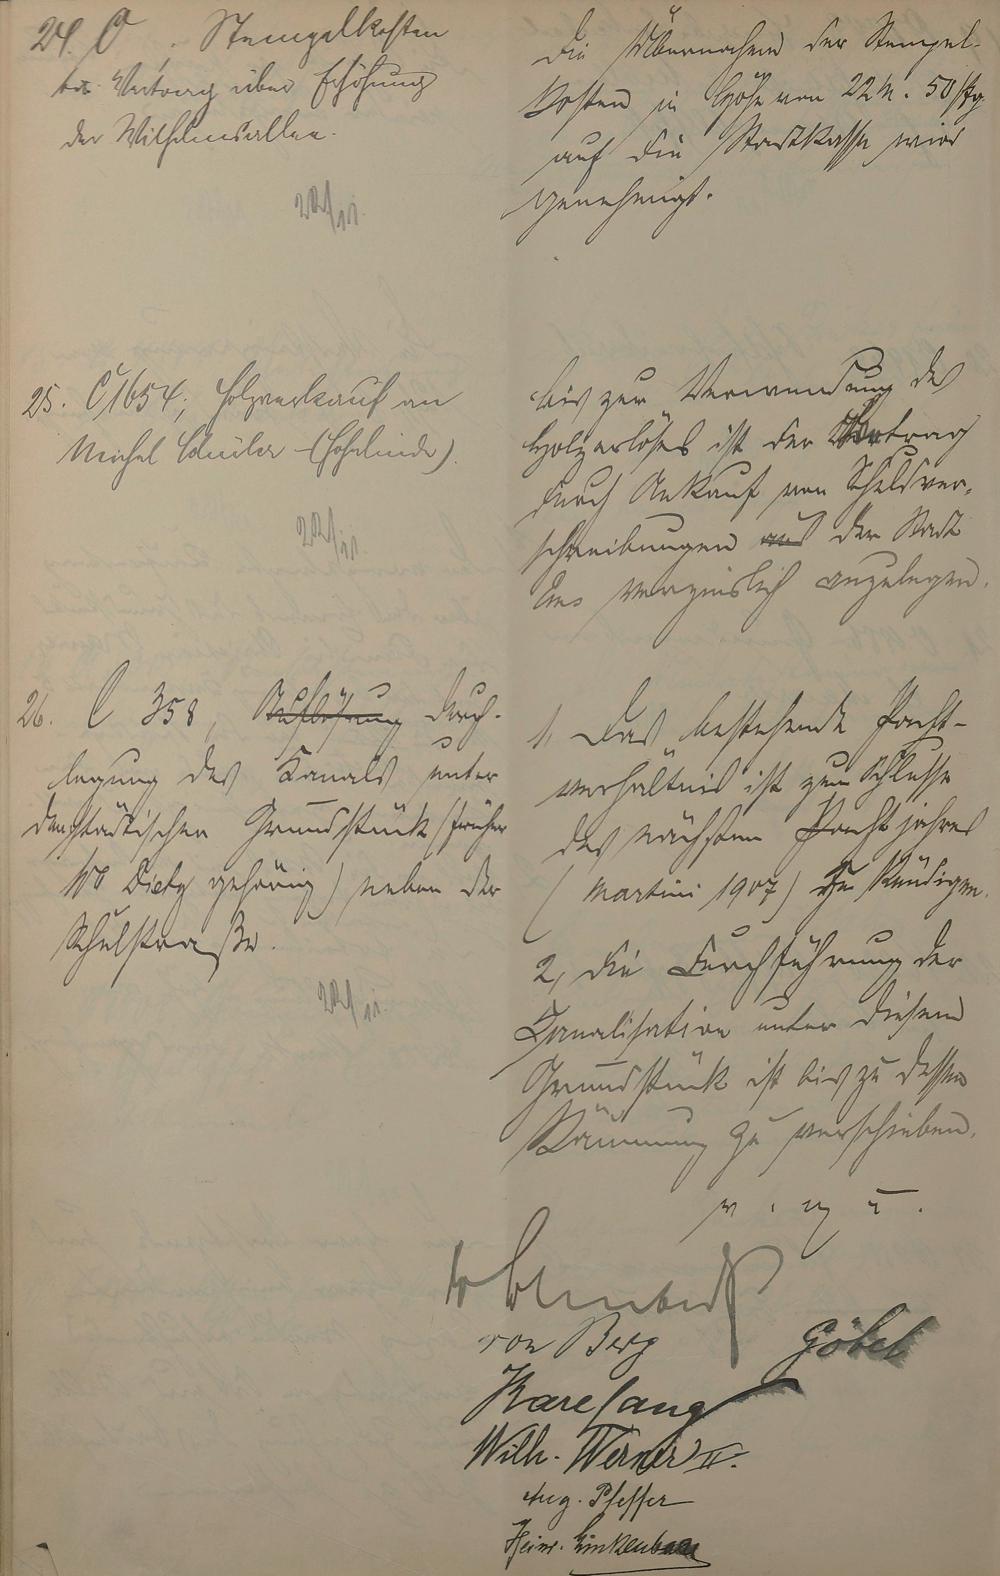 24. C . Stempelkosten
btr. Vertrag über Erhöhung
der Wilhelmsallee.
Die Übernahme der Stempel-
kosten in Höhe von 22 M. 50 Pfg
auf die Stadtkasse wird
genehmigt.
25. C 1654; Holzverkauf an
Michel Schüler (Hohelinde).
bis zur Verwendung des
Holzerlöses ist der Betrag
durch Ankauf von Schuldver-
schreibungen aus der Stadt
verzinslich anzulegen.
26. C 358, Auflösung Durch-
legung des Kanals unter
dem städtischen Grundstück (früher
Dietz gehörig) neben der
Schulstraße.
1, Das bestehende Pacht-
verhältnis ist zum Schlusse
des nächsten Pachtjahres
(Martini 1907) zu kündigen.
2, die Durchführung der
Kanalisation unter diesem
Grundstück ist bis zu dessen
Räumung zu verschieben.
v. g. u.
von Berg
Göbel
Karl Lang
Wilh. Werner II.
Aug. Pfeffer
Heinr.